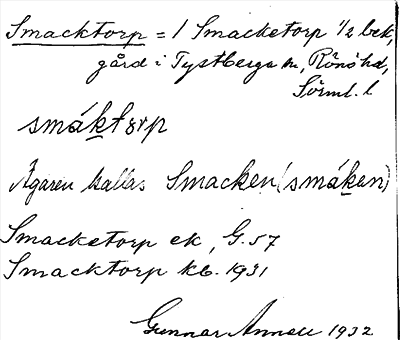 Smacktorp = 1 Smacketorp 1/2 bek,
gård i Tystberga sn, Rönö hd,
Sörml. l
smáktɷrp
Ägaren kallas Smacken (smákan)
Smacketorp ek, G. 57
Smacktorp kb. 1931
Gunnar Annell 1932